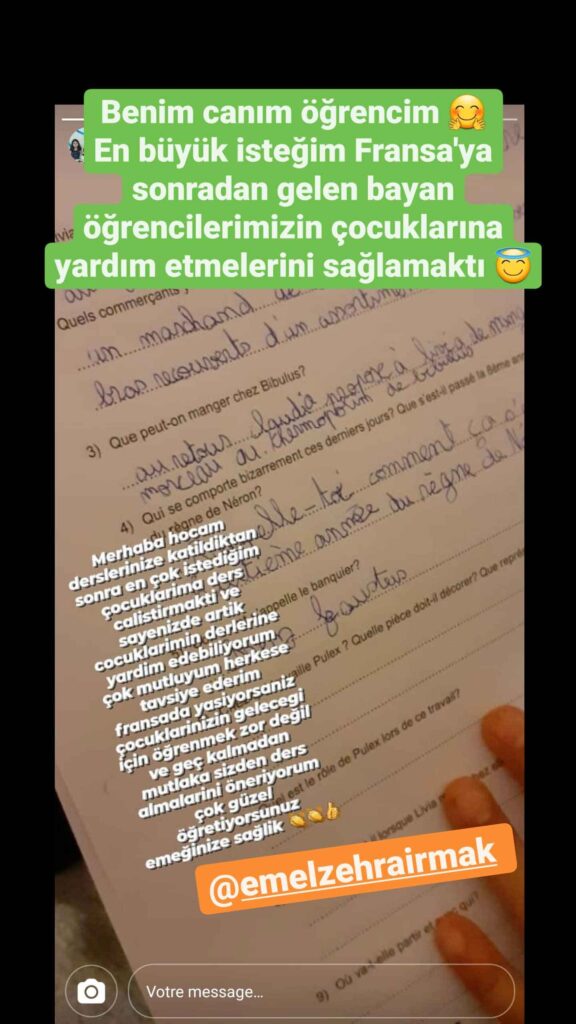 Benim canım öğrencim 🤗
En büyük isteğim Fransa'ya
sonradan gelen bayan
öğrencilerimizin çocuklarına
yardım etmelerini sağlamaktı 😇
Quels commerçants
un marchand de
bras recouverts d'un assortiment
3) Que peut-on manger chez Bibulus?
au retour Claudia propose à Livia de manger
morceau au thermopolium de Bibulus
4) Qui se comporte bizarrement ces derniers jours? Que s'est-il passé la 8ème
du règne de Néron?
elle-toi comment ça s'
année du règne de
appelle le banquier?
Faustus
Pulex ? Quelle pièce doit-il décorer? Que
est le rôle de Pulex lors de ce travail?
lorsque Livia
9) Où va-t-elle partir et avec qui?
Merhaba hocam
derslerinize katildiktan
sonra en çok istediğim
çocuklarima ders
calistirmakti ve
sayenizde artik
cocuklarimin derlerine
yardim edebiliyorum
çok mutluyum herkese
tavsiye ederim
fransada yaşiyorsaniz
çocuklarinizin gelecegi
için öğrenmek zor değil
ve geç kalmadan
mutlaka sizden ders
almalarini öneriyorum
çok güzel
öğretiyorsunuz
emeğinize sağlik 👏👏👍
@emelzehrairmak
Votre message...